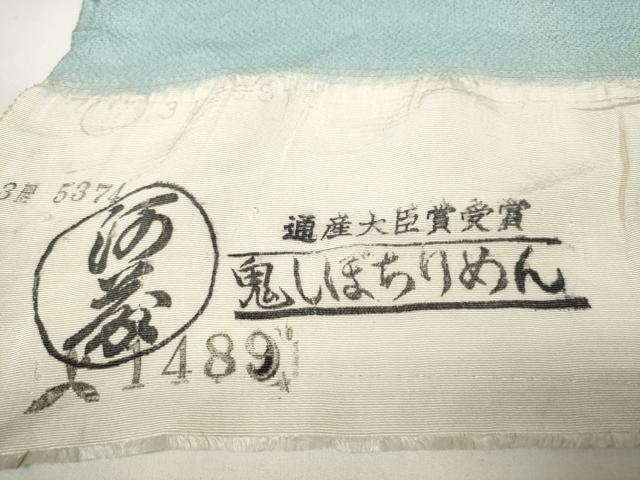 5374
通産大臣賞受賞
鬼しぼちりめん
河藤
1489